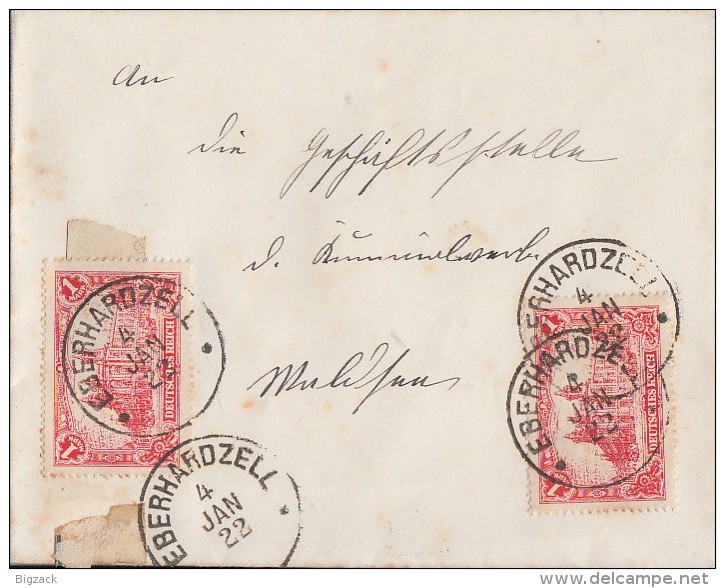 An
die Geschäftsstelle
d.
Waldsee
1
DEUTSCHES REICH
1
EBERHARDZELL
4
JAN
22
EBERHARDZELL
4
JAN
22
EBERHARDZELL
4
JAN
22
EBERHARDZELL
4
JAN
22
1
DEUTSCHES REICH
1
Bigzack
delcampe.net